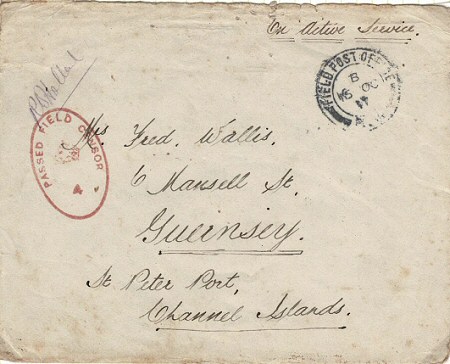 On Active Service.
FIELD POST OFFICE
PASSED FIELD CENSOR
4
Mrs Fred. Wallis.
6 Mansell St.
Guernsey.
St Peter Port,
Channel Islands.